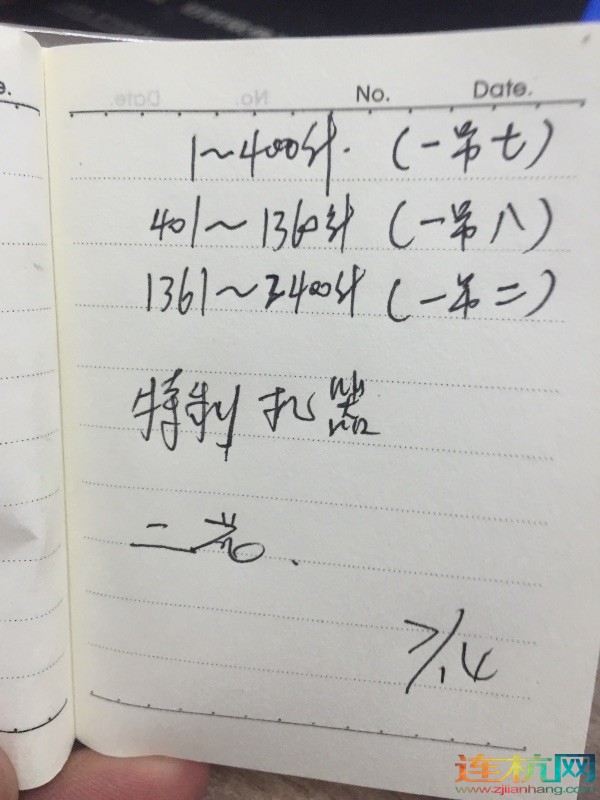 No. Date.
1～400针. (一吊七)
401～1360针 (一吊八)
1361～2400针 (一吊二)
特制扎器
二光.
7/14
连杭网
www.zjianhang.com